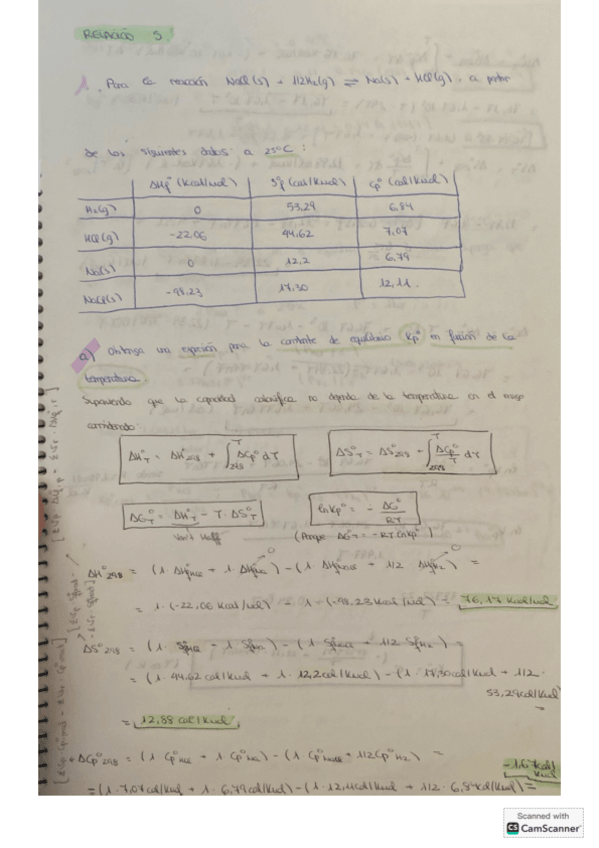 RELACIÓN 5
1. Para la reacción NaCl(s) + 1/2H₂(g) ⇌ Na(s) + HCl(g), a partir
de los siguientes datos a 25°C:
ΔHf° (Kcal/mol) Sf° (cal/Kmol) Cp° (cal/Kmol)
H₂(g) 0 53,29 6,84
HCl(g) -22,06 44,62 7,07
Na(s) 0 12,2 6,79
NaCl(s) -98,23 17,30 12,11.
a) Obtenga una expresión para la constante de equilibrio Kp° en función de la
temperatura.
Suponiendo que la capacidad calorífica no depende de la temperatura en el rango
considerado:
ΔH°T = ΔH°298 + ∫²⁹⁸ᵀ ΔCp° dT
ΔS°T = ΔS°298 + ∫²⁹⁸ᵀ ΔCp°/T dT
ΔG°T = ΔH°T - T · ΔS°T
LnKp° = - ΔG°/RT
Van't Hoff
(Porque ΔG°T = -RT LnKp°)
0 0
ΔH°298 = (1 ΔHfHCl + 1 ΔHfNa) - (1 ΔHfNaCl + 1/2 ΔHfH₂) =
= 1 · (-22,06 Kcal/mol) - 1 · (-98,23 Kcal/mol) = 76,17 Kcal/mol
ΔS°298 = (1 · S°fHCl + 1 S°fNa) - (1 · S°fNaCl + 1/2 S°fH₂) =
= (1 · 44,62 cal/Kmol + 1 · 12,2 cal/Kmol) - (1 · 17,30 cal/Kmol + 1/2 ·
53,29 cal/Kmol)
=
= 12,88 cal/Kmol
ΔCp°298 = (1 · Cp°HCl + 1 Cp°Na) - (1 · Cp°NaCl + 1/2 Cp°H₂) =
-1,67 cal/
Kmol
= (1 · 7,07 cal/Kmol + 1 · 6,79 cal/Kmol) - (1 · 12,11 cal/Kmol + 1/2 · 6,84 cal/Kmol) =
Scanned with
CS CamScanner